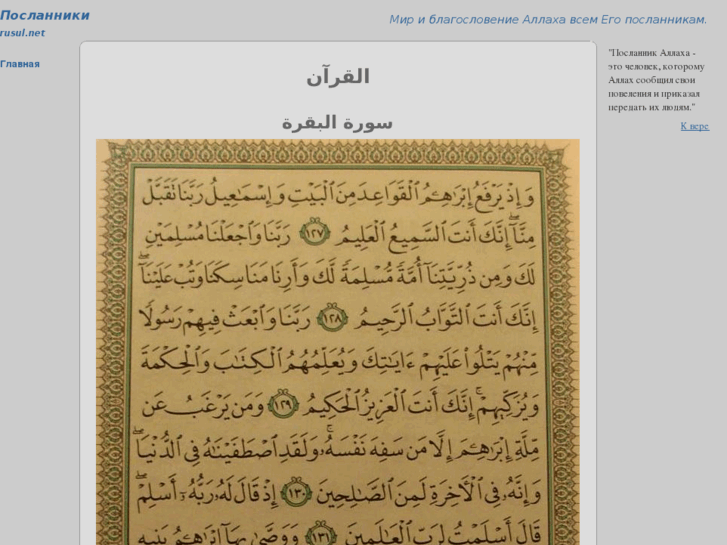 Посланники
rusul.net
Мир и благословение Аллаха всем Его посланникам.
Главная
القرآن
سورة البقرة
وَإِذْ يَرْفَعُ إِبْرَٰهِـۧمُ ٱلْقَوَاعِدَ مِنَ ٱلْبَيْتِ وَإِسْمَٰعِيلُ رَبَّنَا تَقَبَّلْ
مِنَّآ ۖ إِنَّكَ أَنتَ ٱلسَّمِيعُ ٱلْعَلِيمُ ١٢٧ رَبَّنَا وَٱجْعَلْنَا مُسْلِمَيْنِ
لَكَ وَمِن ذُرِّيَّتِنَآ أُمَّةً مُّسْلِمَةً لَّكَ وَأَرِنَا مَنَاسِكَنَا وَتُبْ عَلَيْنَآ ۖ
إِنَّكَ أَنتَ ٱلتَّوَّابُ ٱلرَّحِيمُ ١٢٨ رَبَّنَا وَٱبْعَثْ فِيهِمْ رَسُولًا
مِّنْهُمْ يَتْلُوا۟ عَلَيْهِمْ ءَايَٰتِكَ وَيُعَلِّمُهُمُ ٱلْكِتَٰبَ وَٱلْحِكْمَةَ
وَيُزَكِّيهِمْ ۚ إِنَّكَ أَنتَ ٱلْعَزِيزُ ٱلْحَكِيمُ ١٢٩ وَمَن يَرْغَبُ عَن
مِّلَّةِ إِبْرَٰهِـۧمَ إِلَّا مَن سَفِهَ نَفْسَهُۥ ۚ وَلَقَدِ ٱصْطَفَيْنَٰهُ فِى ٱلدُّنْيَا ۖ
وَإِنَّهُۥ فِى ٱلْءَاخِرَةِ لَمِنَ ٱلصَّٰلِحِينَ ١٣٠ إِذْ قَالَ لَهُۥ رَبُّهُۥٓ أَسْلِمْ ۖ
قَالَ أَسْلَمْتُ لِرَبِّ ٱلْعَٰلَمِينَ ١٣١ وَوَصَّىٰ بِهَآ إِبْرَٰهِـۧمُ بَنِيهِ
"Посланник Аллаха -
это человек, которому
Аллах сообщил свои
повеления и приказал
передать их людям."
К вере